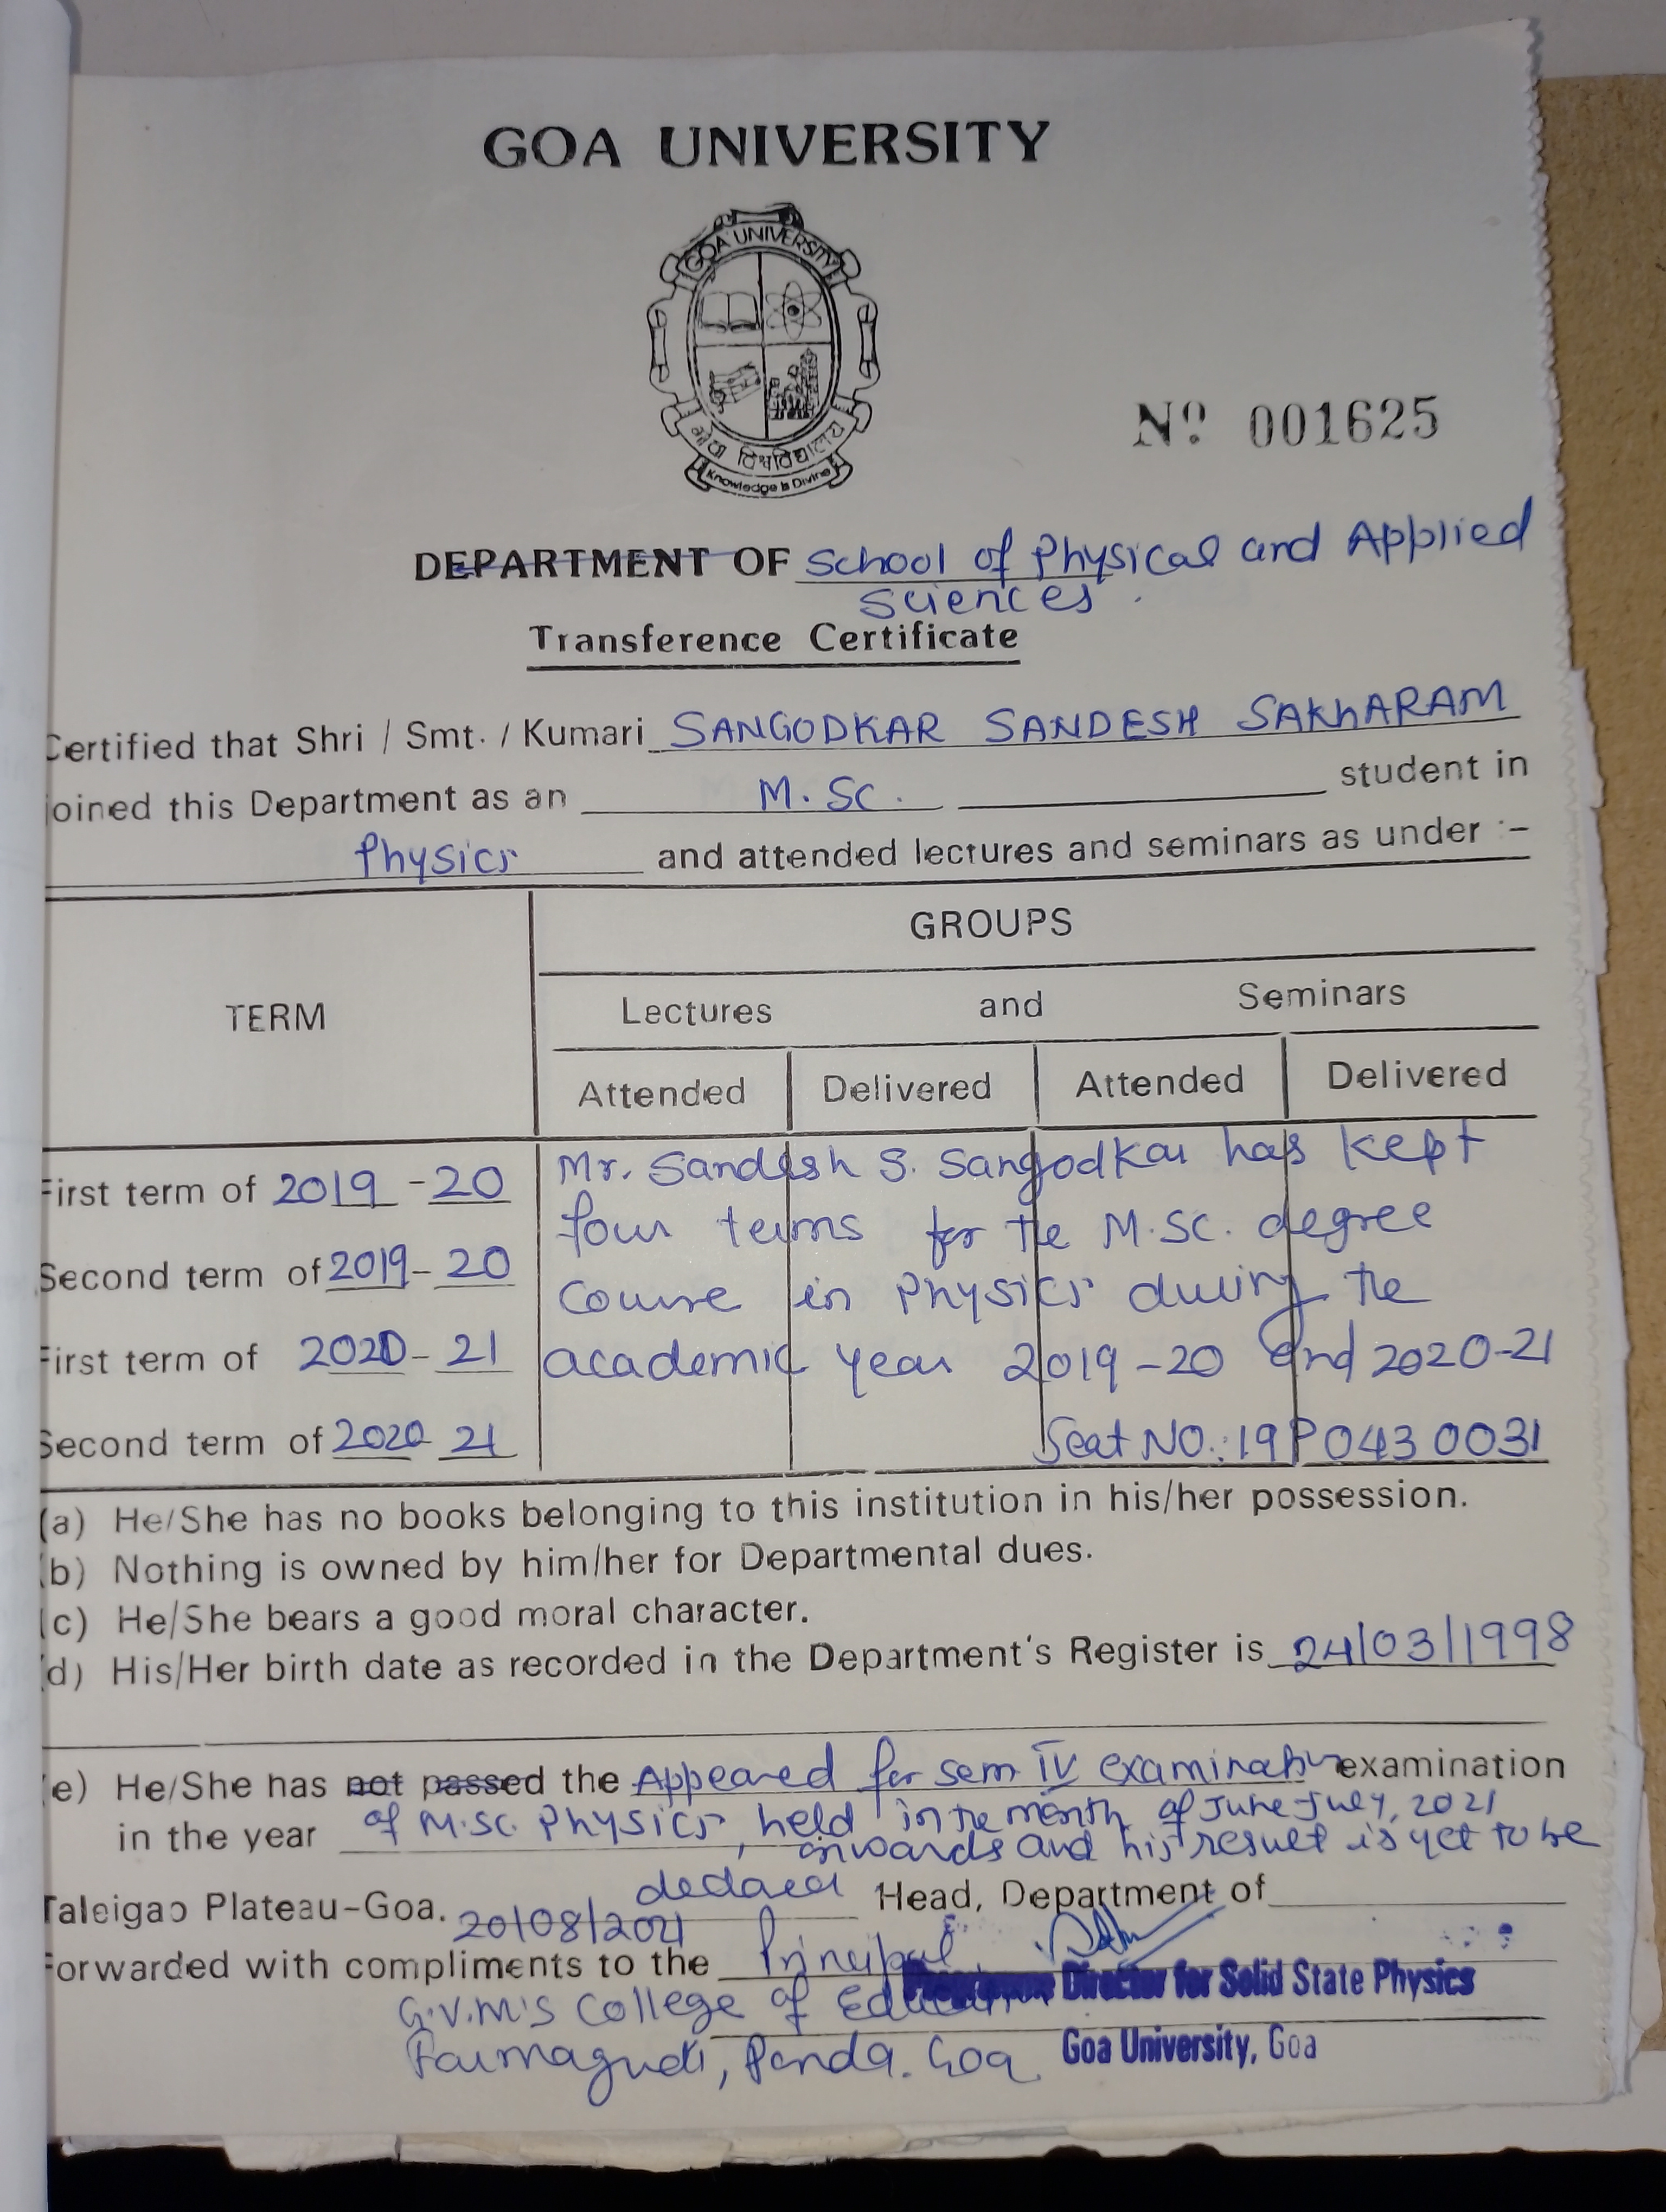 GOA UNIVERSITY
GOA UNIVERSITY
गोवा विश्वविद्यालय
Knowledge is Divine
Nº 001625
DEPARTMENT OF School of Physical and Applied
Sciences.
Transference Certificate
Certified that Shri / Smt. / Kumari SANGODKAR SANDESH SAKHARAM
joined this Department as an M.Sc. student in
Physics and attended lectures and seminars as under :–
GROUPS
TERM
Lectures and Seminars
Attended Delivered Attended Delivered
First term of 2019 - 20 Mr. Sandesh S. Sangodkar has kept
four terms for the M.Sc. degree
Second term of 2019 - 20
Course in Physics during the
First term of 2020 - 21 academic year 2019-20 and 2020-21
Second term of 2020 21 Seat NO.: 19P0430031
(a) He/She has no books belonging to this institution in his/her possession.
(b) Nothing is owned by him/her for Departmental dues.
(c) He/She bears a good moral character.
(d) His/Her birth date as recorded in the Department's Register is 24/03/1998
(e) He/She has not passed the Appeared for sem IV examination examination
in the year of M.Sc. Physics, held in the month of June-July, 2021
onwards and his result is yet to be
declared Head, Department of
Taleigao Plateau-Goa. 20/08/2021
Forwarded with compliments to the Principal
Programme Director for Solid State Physics
G.V.M'S College of Education
Goa University, Goa
Farmagudi, Ponda. Goa